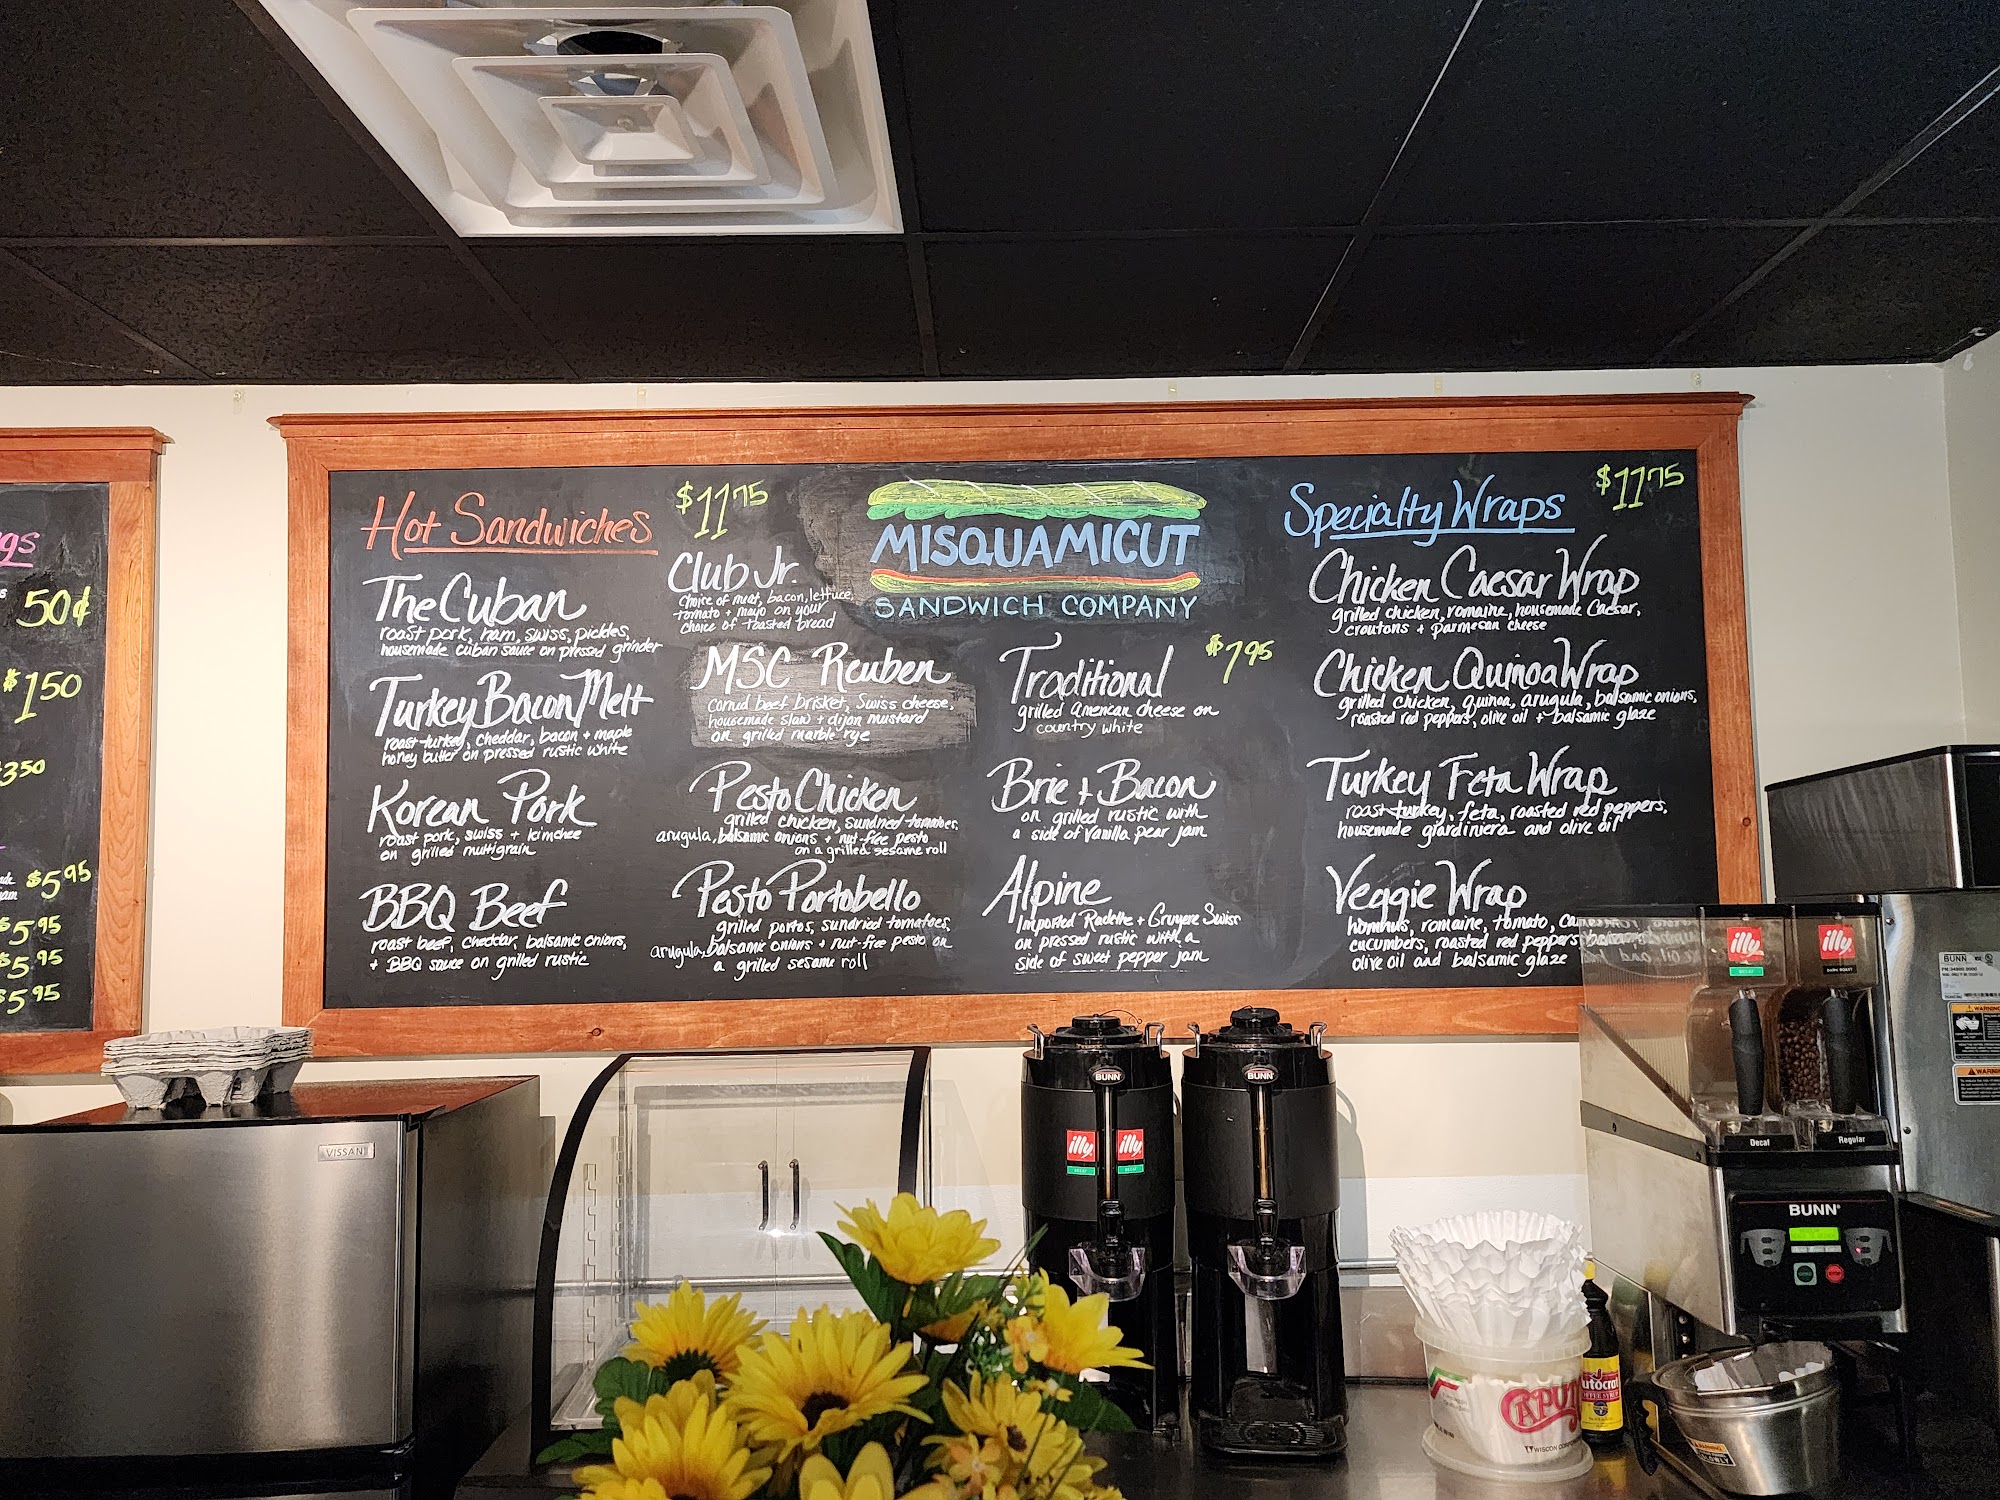 gs
50¢
$150
350
$595
$595
$595
$595
Hot Sandwiches
$1175
The Cuban
roast pork, ham, swiss, pickles,
housemade cuban sauce on pressed grinder
Turkey Bacon Melt
roast turkey, cheddar, bacon + maple
honey butter on pressed rustic white
Korean Pork
roast pork, swiss + kimchee
on grilled multigrain
BBQ Beef
roast beef, cheddar, balsamic onions,
+ BBQ sauce on grilled rustic
Club Jr.
choice of meat, bacon, lettuce,
tomato + mayo on your
choice of toasted bread
MSC Reuben
corned beef brisket, Swiss cheese,
housemade slaw + dijon mustard
on grilled marble rye
Pesto Chicken
grilled chicken, sundried tomatoes,
arugula, balsamic onions + nut-free pesto
on a grilled sesame roll
Pesto Portobello
grilled portos, sundried tomatoes,
arugula, balsamic onions + nut-free pesto on
a grilled sesame roll
MISQUAMICUT
SANDWICH COMPANY
$795
Traditional
grilled american cheese on
country white
Brie + Bacon
on grilled rustic with
a side of Vanilla pear jam
Alpine
Imported Raclette + Gruyere Swiss
on pressed rustic with a
side of sweet pepper jam
Specialty Wraps
$1175
Chicken Caesar Wrap
grilled chicken, romaine, housemade Caesar,
croutons + parmesan cheese
Chicken Quinoa Wrap
grilled chicken, quinoa, arugula, balsamic onions,
roasted red peppers, olive oil + balsamic glaze
Turkey Feta Wrap
roast turkey, feta, roasted red peppers,
housemade giardiniera and olive oil
Veggie Wrap
hummus, romaine, tomato,
cucumbers, roasted red peppers
olive oil and balsamic glaze
VISSANI
BUNN
illy illy
DECAF DECAF
BUNN
illy
DECAF
illy
DARK ROAST
Decaf
Regular
BUNN
BUNN
WARNING
WARNING
CAPU
WISCON
utocrat
COFFEE SYRUP